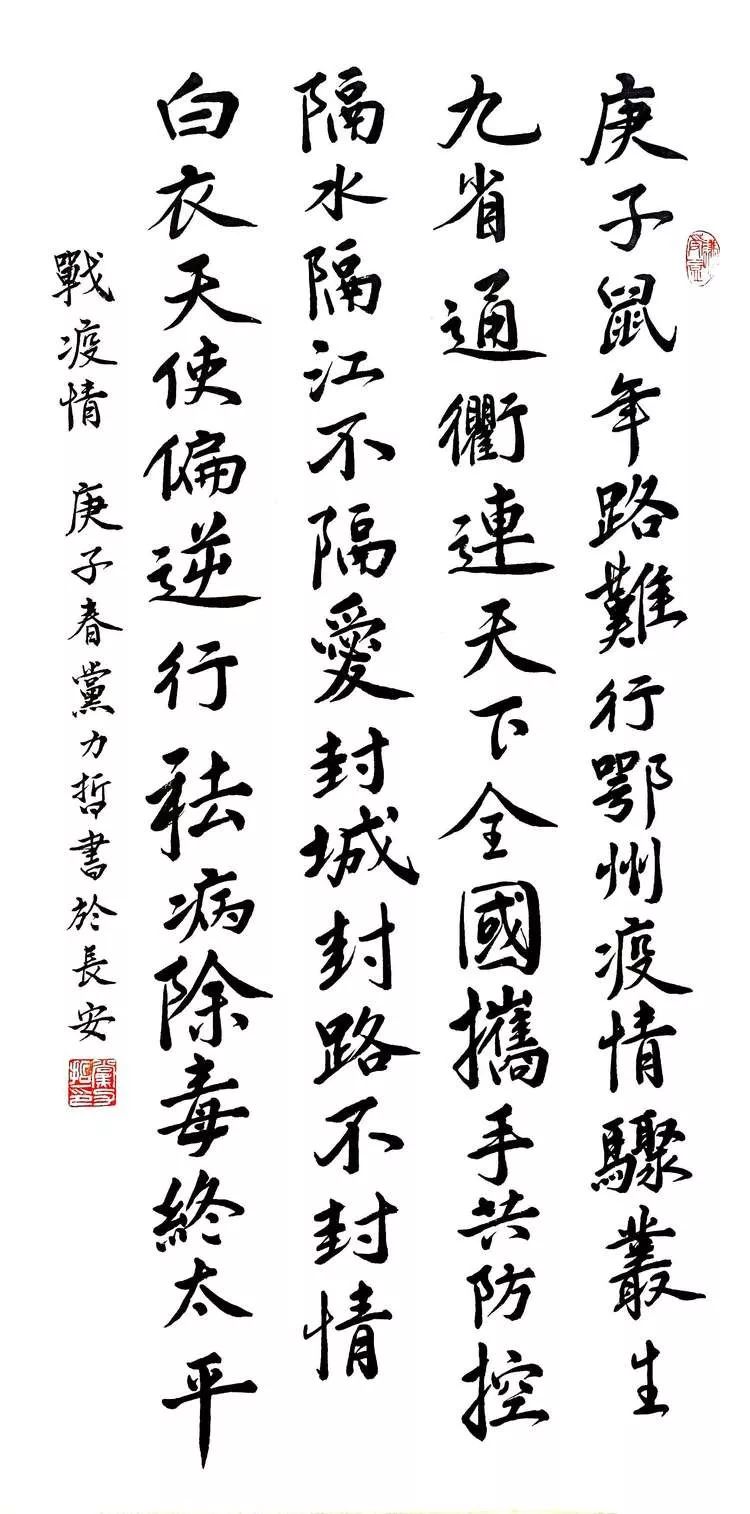 庚子鼠年路難行鄂州疫情驟叢生
九省通衢連天下全國攜手共防控
隔水隔江不隔愛封城封路不封情
白衣天使偏逆行祛病除毒終太平
戰疫情 庚子春黨力哲書於長安